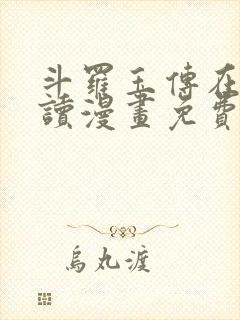 斗羅王傳在
讀漫畫免費
烏丸渡